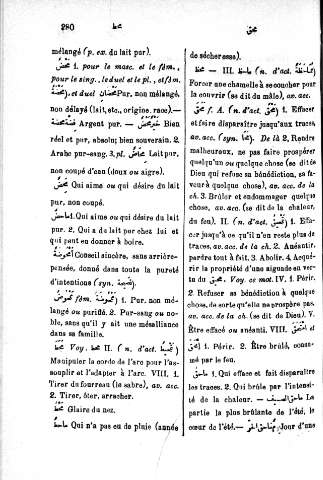 280
محط
محق
mélangé (p. ex. du lait pur).
مَحْضٌ 1. pour le masc. et le fém.,
pour le sing., le duel et le pl., et fém.
مَحْضَةٌ), et duel مَحْضَانِ Pur, non mélangé,
non délayé (lait, etc., origine, race). —
فضة محضة Argent pur. — عربى محض Bien
réel et pur, absolu, bien souverain. 2.
Arabe pur-sang. 3. pl. محاض Lait pur,
non coupé d'eau (doux ou aigre).
مَحِضٌ Qui aime ou qui désire du lait
pur, non coupé.
مَاحِضٌ 1. Qui aime ou qui désire du lait
pur. 2. Qui a de lait pur chez lui et
qui peut en donner à boire.
Conseil sincère, sans arrière-
pensée, donné dans toute la pureté
d'intentions (syn.
fém. 1. Pur, non mé-
langé ou purifié. 2. Pur-sang ou no-
ble, sans qu'il y ait une mésalliance
dans sa famille.
محط Voy. مخط II. (n. d'act. تمحيط)
Manipuler la corde de l'arc pour l'as-
souplir et l'adapter à l'arc. VIII. 1.
Tirer du fourreau (le sabre), av. acc.
2. Tirer, ôter, arracher.
محط Glaire du nez.
ماحط Qui n'a pas eu de pluie (année
de sécheresse).
محظ — III. ماحظ (n. d'act.
Forcer une chamelle à se coucher pour
la couvrir (se dit du mâle), av. acc.
محق f. A. (n. d'act. محق) 1. Effacer
et faire disparaître jusqu'aux traces,
av. acc. (syn. محا). De là 2. Rendre
malheureux, ne pas faire prospérer
quelqu'un ou quelque chose (se dit de
Dieu qui refuse sa bénédiction, sa fa-
veur à quelque chose), av. acc. de la
ch. 3. Brûler et endommager quelque
chose, av. acc. (se dit de la chaleur,
du feu). II. (n. d'act. تمحيق) 1. Effa-
cer jusqu'à ce qu'il n'en reste plus de
traces, av. acc. de la ch. 2. Anéantir,
perdre tout à fait. 3. Abolir. 4. Acqué-
rir la propriété d'une aiguade en ver-
tu du محق. Voy. ce mot. IV. 1. Périr.
2. Refuser sa bénédiction à quelque
chose, de sorte qu'elle ne prospère pas,
av. acc. de la ch. (se dit de Dieu). V.
Être effacé ou anéanti. VIII. امتحق et
1. Périr. 2. Être brûlé, consu-
mé par le feu.
ماحق 1. Qui efface et fait disparaître
les traces. 2. Qui brûle par l'intensi-
té de la chaleur. — ماحق الصيف La
partie la plus brûlante de l'été, le
cœur de l'été. — يوم ماحق Jour d'une